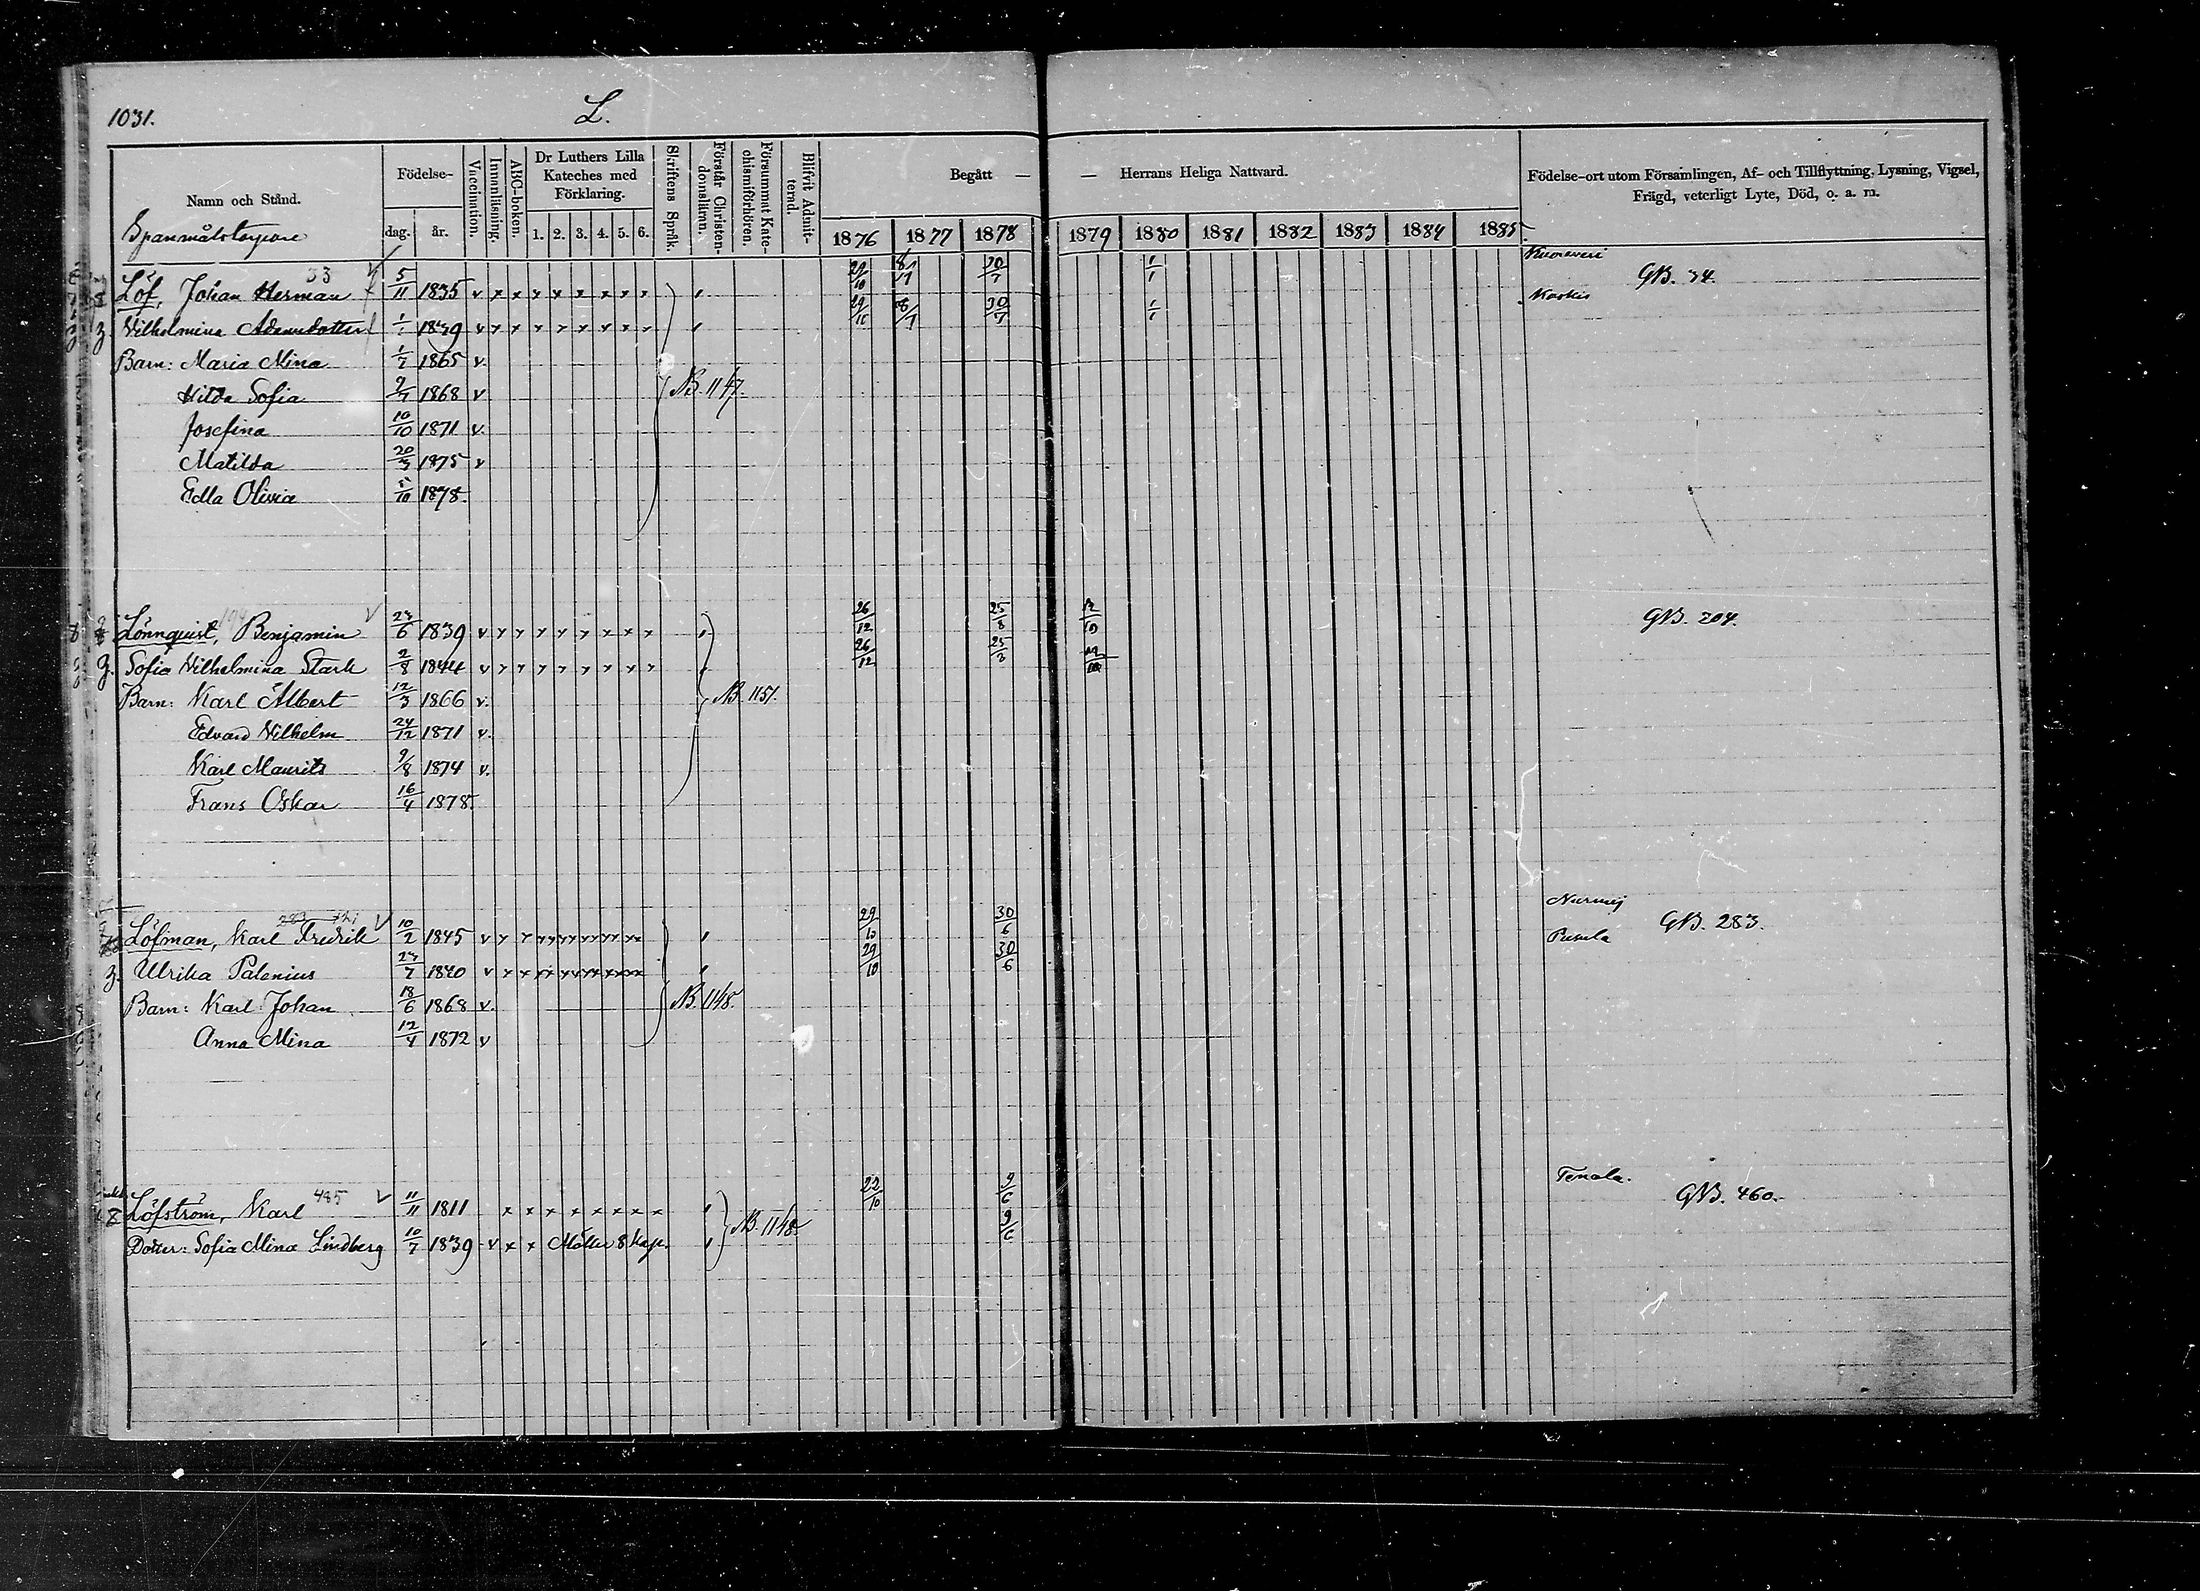 1031.
L.
Namn och Stånd.
Födelse-
dag. år.
Vaccination.
Innanläsning.
ABC-boken.
Dr Luthers Lilla Kateches med Förklaring.
1. 2. 3. 4. 5. 6.
Skriftens Språk.
Förstår Christendomsläran.
Försummat Katechismiförhören.
Blifvit Admitterad.
Begått — — Herrans Heliga Nattvard.
1876 1877 1878 1879 1880 1881 1882 1883 1884 1885
Födelse-ort utom Församlingen, Af- och Tillflyttning, Lysning, Vigsel,
Frägd, veterligt Lyte, Död, o. a. m.
33
Löf, Johan Herman 5/11 1835 v x x x x x x x x 29/10 8/7 30/7 1/1 GB. 34.
Vilhelmina Adamsdotter 1/1 1839 v x x x x x x x x 8/7 30/7 1/1
Barn: Maria Mina 1/7 1865 v.
Hilda Sofia 1868 v NB. 1147.
Josefina 10/10 1871 v.
Matilda 1875 v
Edla Olivia 1878.
Lönnquist, Benjamin 23/6 1839 v x x x x x x x x 26/12 25/8 GB. 204.
Sofia Vilhelmina Stark 2/8 1844 v x x x x x x x x 26/12 25/8
Barn: Karl Albert 12/3 1866 v. NB. 1151.
Edvard Vilhelm 24/12 1871 v.
Karl Maurits 9/8 1874 v.
Frans Oskar 16/4 1878.
283
Löfman, Karl Fredrik 10/2 1845 29/10 30/6 Nurmij GB. 283.
z. Ulrika Palenius 1840 29/10 30/6 Pusula
Barn: Karl Johan 18/6 1868 v. NB. 1148.
Anna Mina 12/4 1872 v
485
Löfström, Karl 11/11 1811 x x x x x x x x 22/10 9/6 Tenala. GB. 460.
Dotter: Sofia Mina Lindberg 10/7 1839 v x x Möller 8 kap. NB. 1148. 9/6